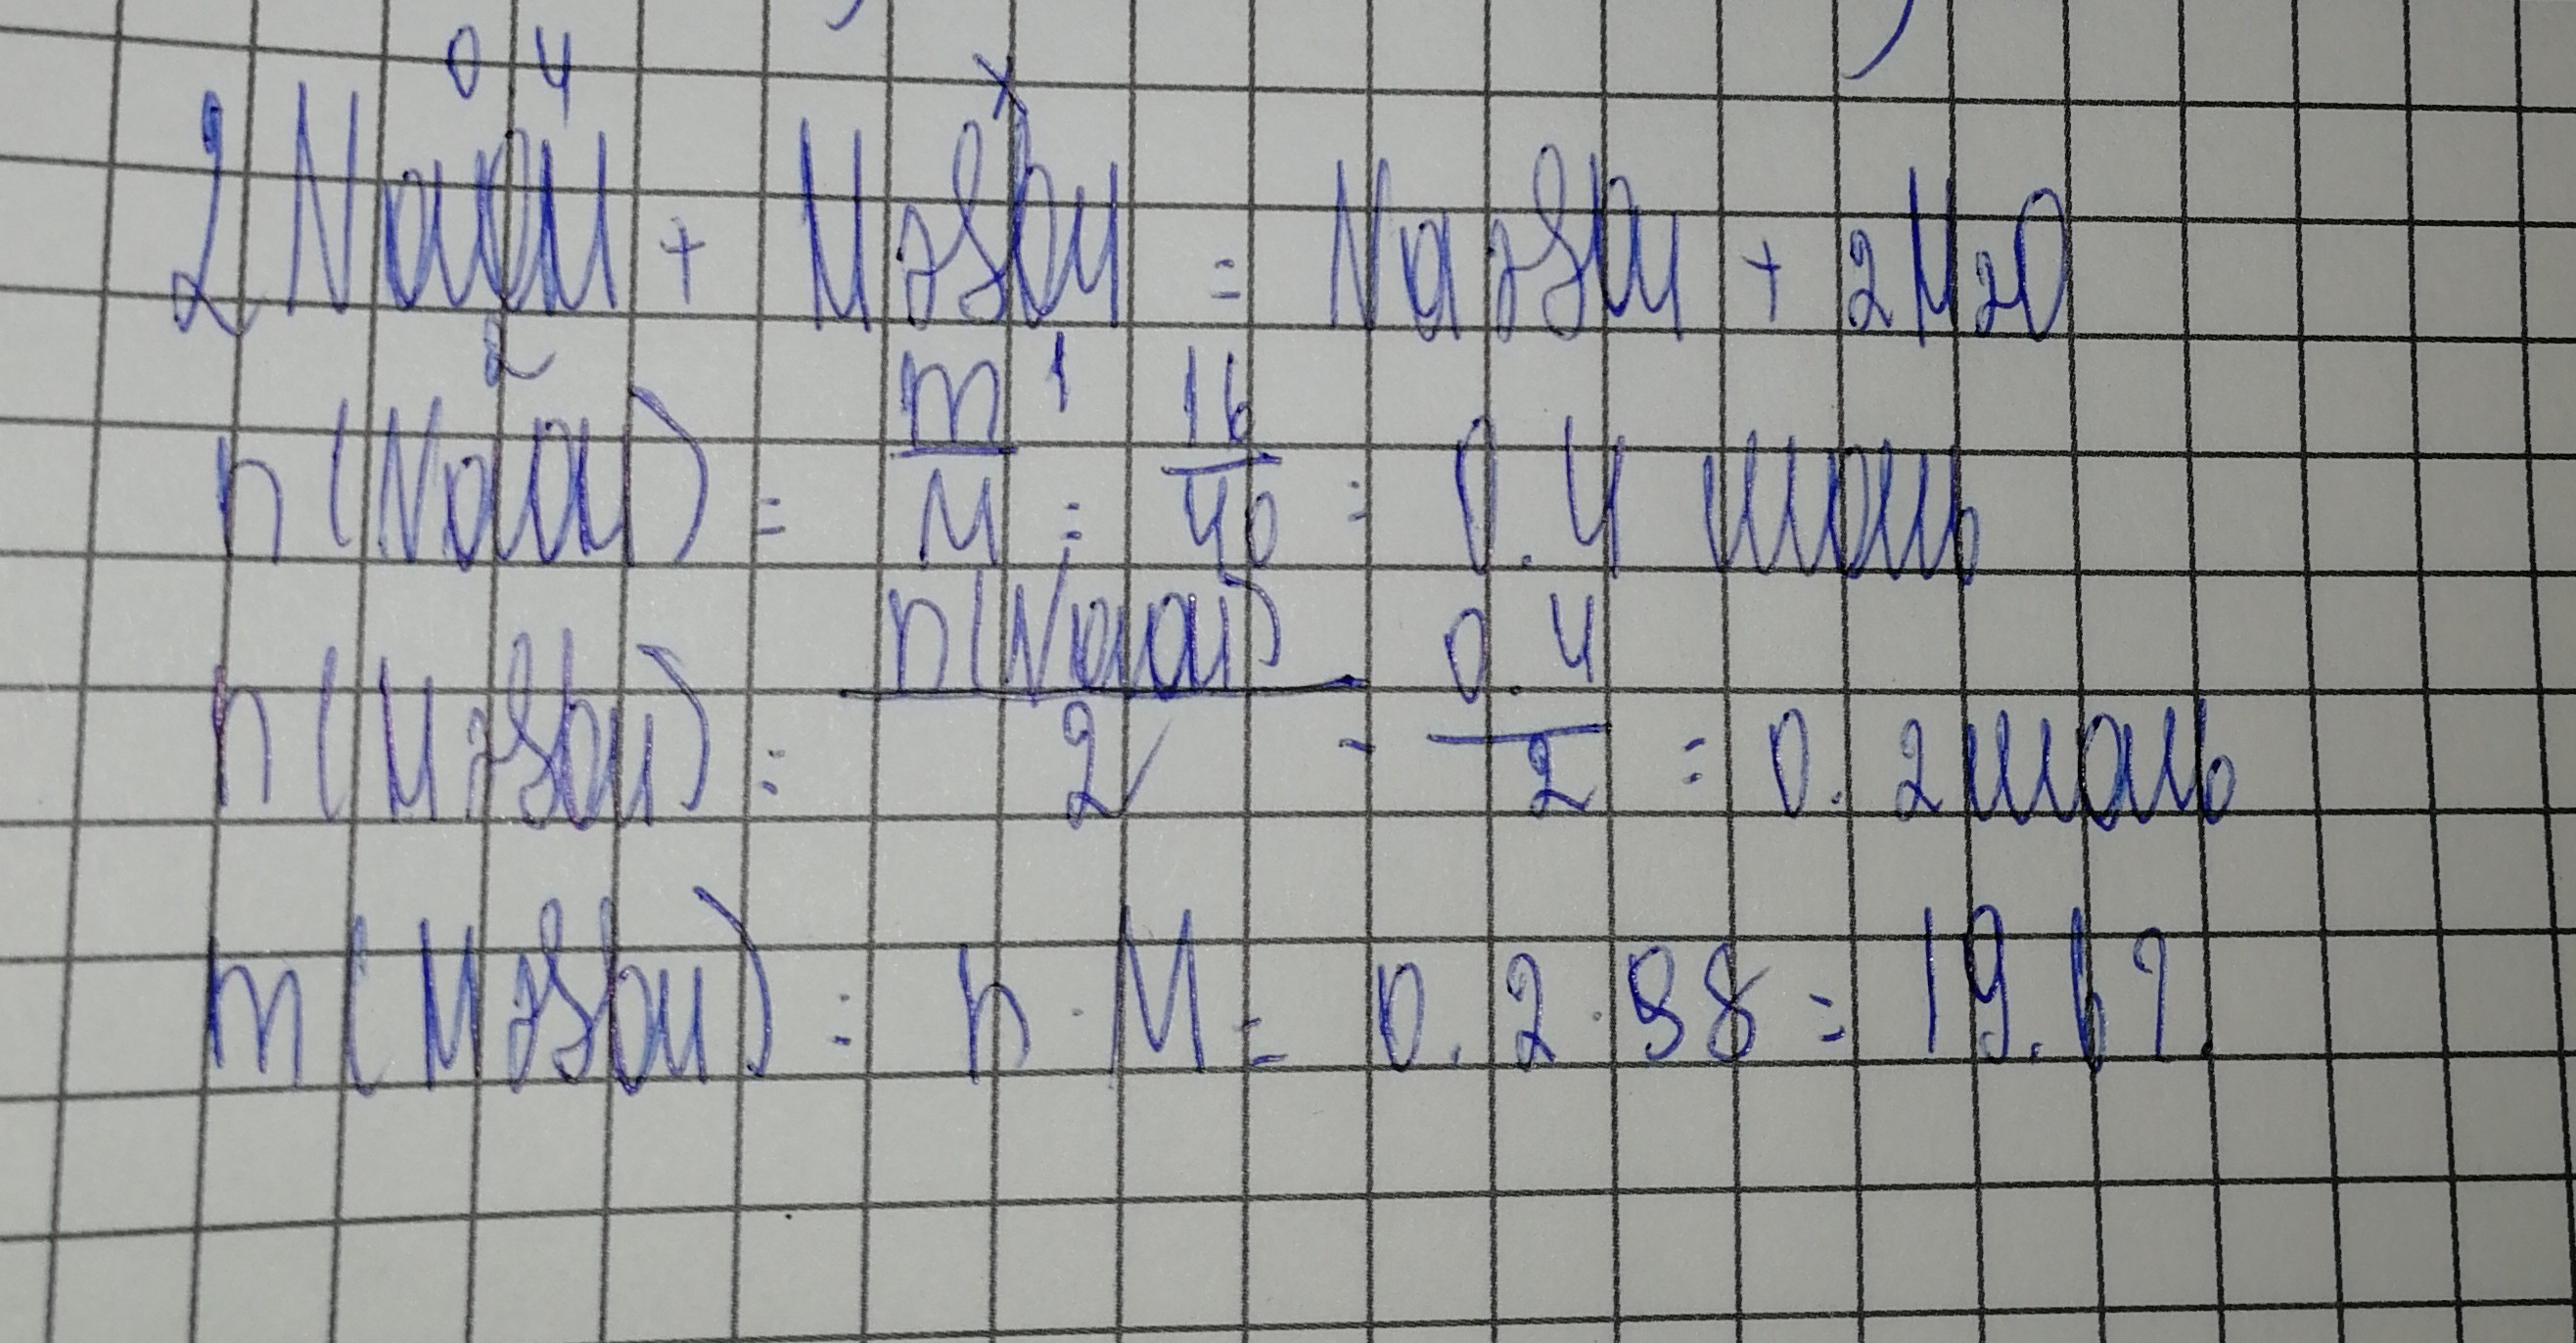 0 4 x
2NaOH + H2SO4 = Na2SO4 + 2H2O
2 1
n(NaOH) = m/M = 16/40 = 0.4 моль
n(H2SO4) = n(NaOH)/2 = 0.4/2 = 0.2 моль
m(H2SO4) = n · M = 0.2 · 98 = 19.6 г.